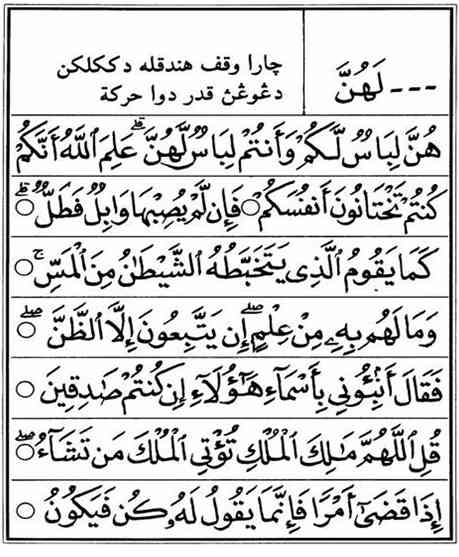 --- لَهُنَّ
چارا وقف هندقله دككلكن
دڠوڠن قدر دوا حركة
هُنَّ لِبَاسٌ لَّكُمْ وَأَنتُمْ لِبَاسٌ لَّهُنَّ ۗ عَلِمَ ٱللَّهُ أَنَّكُمْ
كُنتُمْ تَخْتَانُونَ أَنفُسَكُمْ ○ فَإِن لَّمْ يُصِبْهَا وَابِلٌ فَطَلٌّ ۗ ○
كَمَا يَقُومُ ٱلَّذِى يَتَخَبَّطُهُ ٱلشَّيْطَٰنُ مِنَ ٱلْمَسِّ ۚ ○
وَمَا لَهُم بِهِۦ مِنْ عِلْمٍ ۖ إِن يَتَّبِعُونَ إِلَّا ٱلظَّنَّ ۖ ○
فَقَالَ أَنۢبِـُٔونِى بِأَسْمَآءِ هَٰٓؤُلَآءِ إِن كُنتُمْ صَٰدِقِينَ ○
قُلِ ٱللَّهُمَّ مَٰلِكَ ٱلْمُلْكِ تُؤْتِى ٱلْمُلْكَ مَن تَشَآءُ ۖ ○
إِذَا قَضَىٰٓ أَمْرًا فَإِنَّمَا يَقُولُ لَهُۥ كُن فَيَكُونُ ○